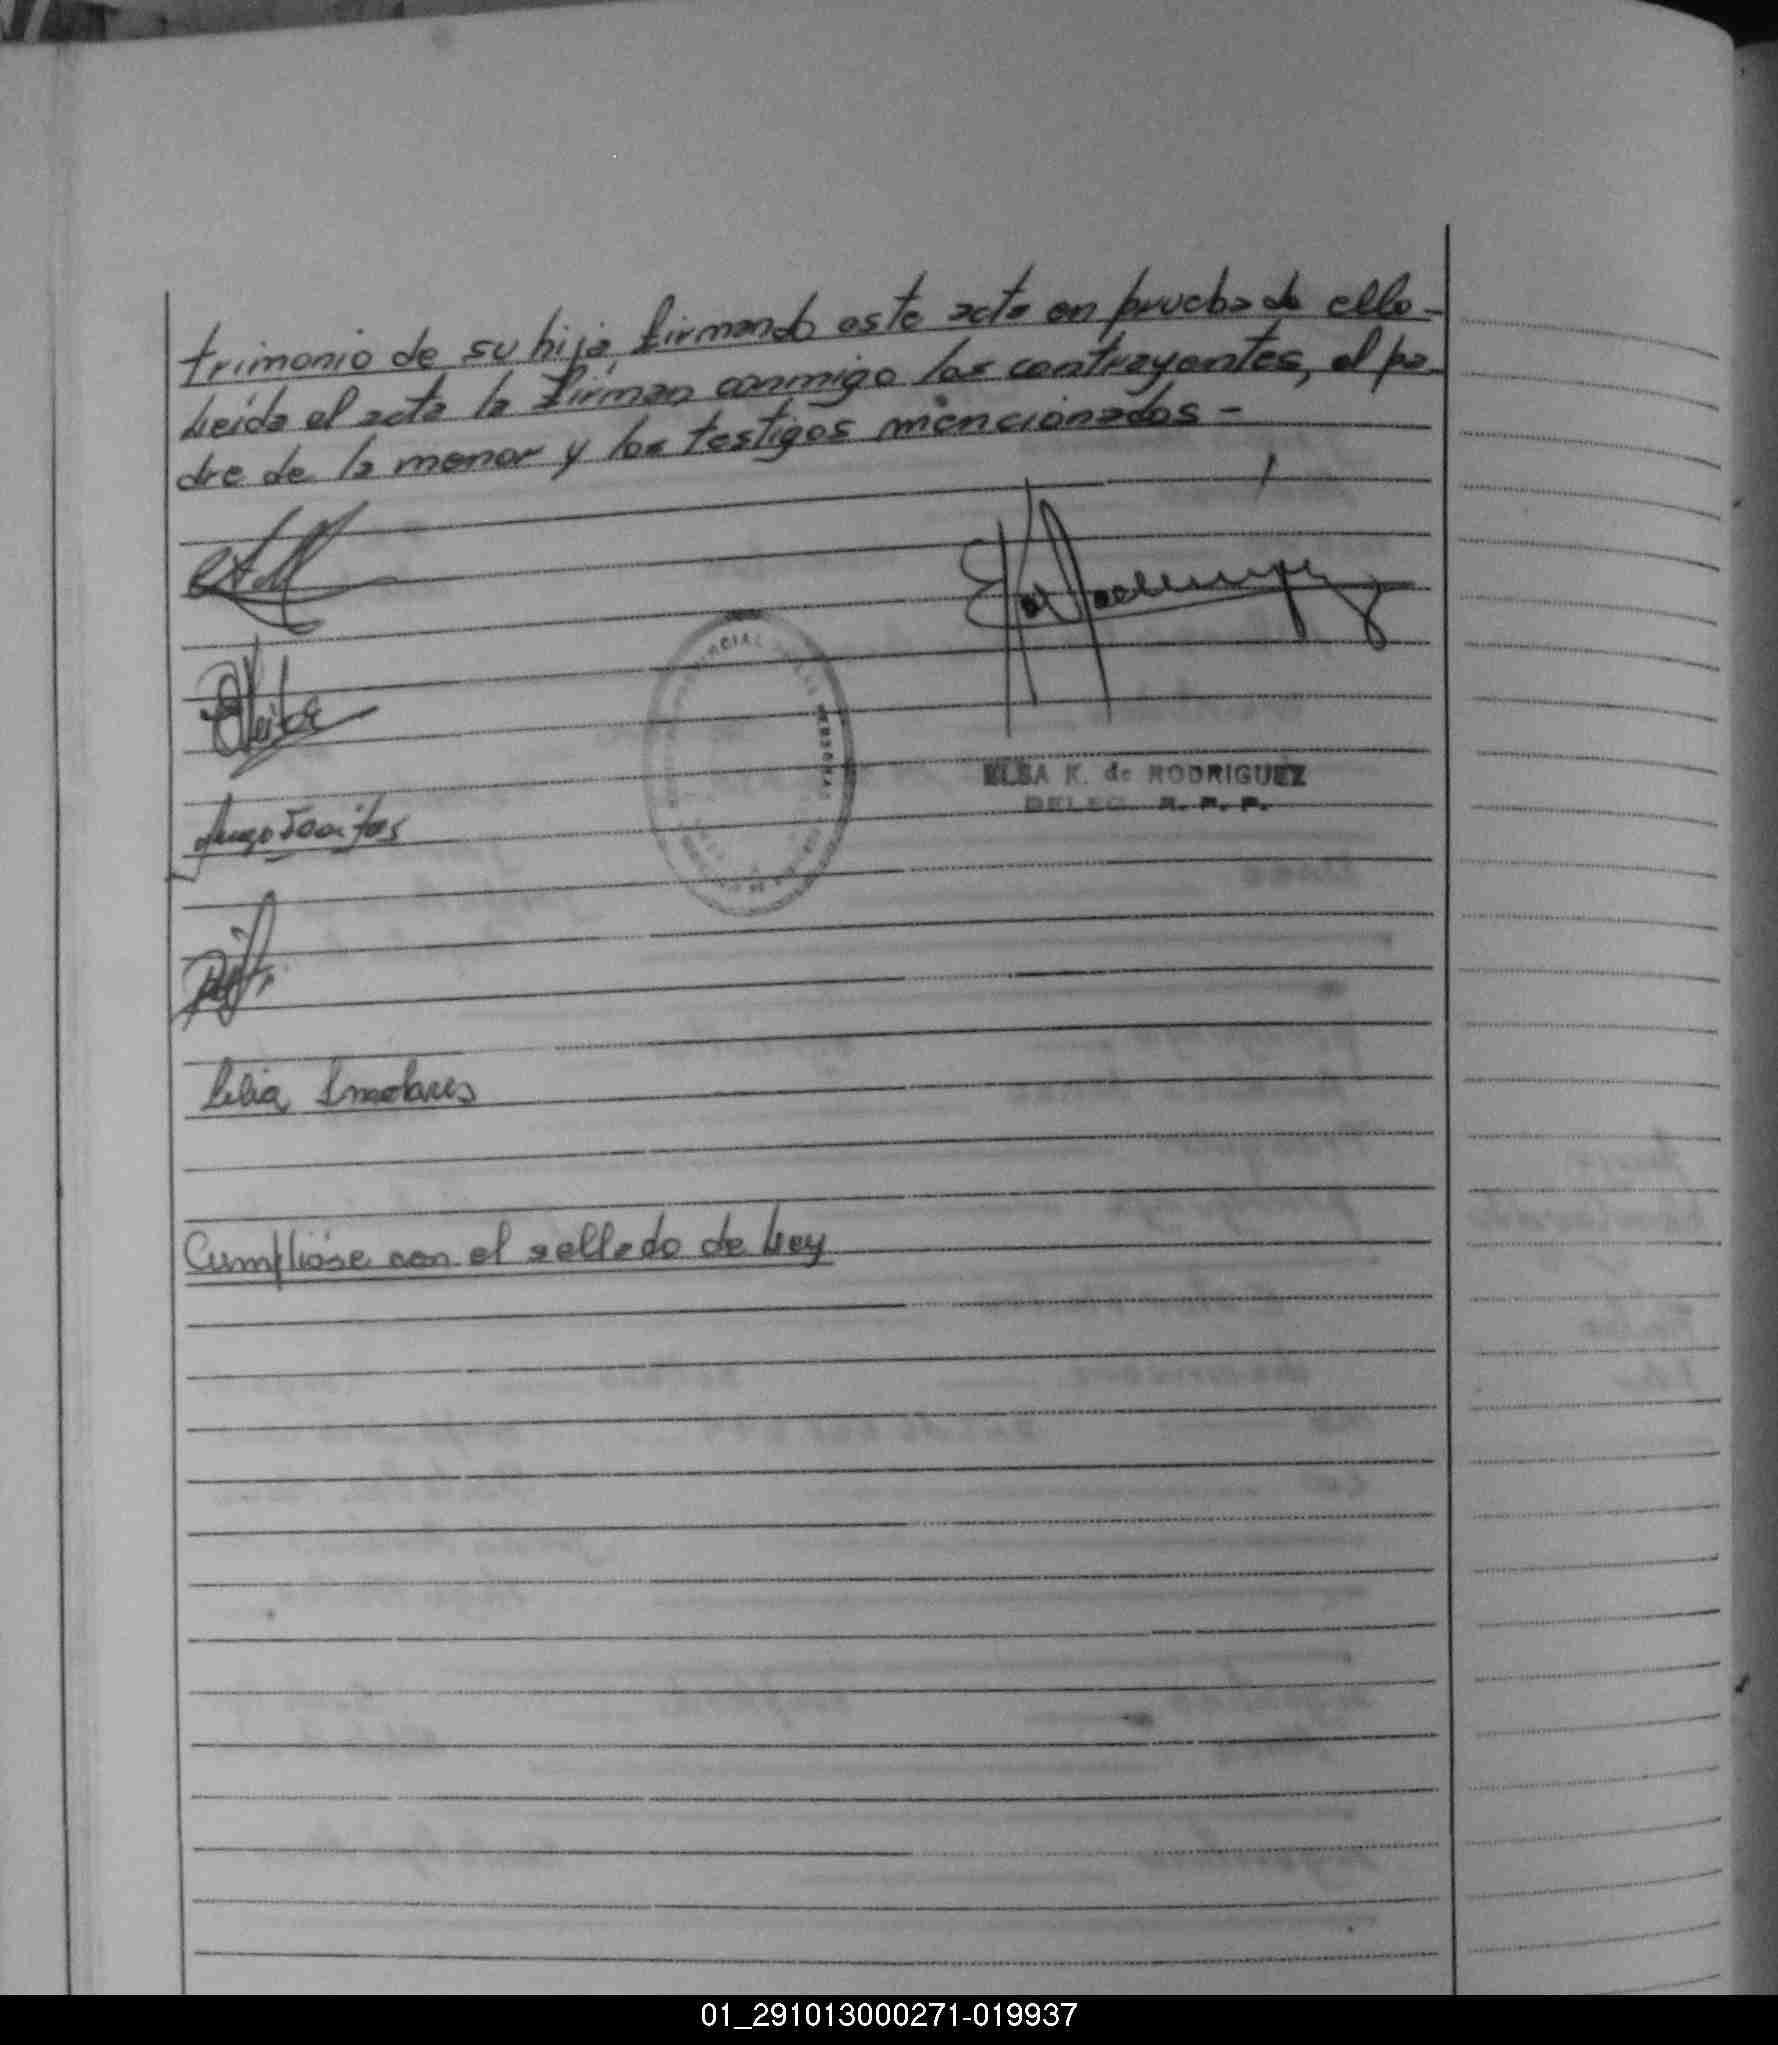 trimonio de su hija firmando este acta en prueba de ello-
Leida el acta la firman conmigo los contrayentes, el pa-
dre de la menor y los testigos mencionados -
ELSA K. de RODRIGUEZ
DELEG. R. P. P.
Lelia
Cumplióse con el sellado de Ley
01_291013000271-019937